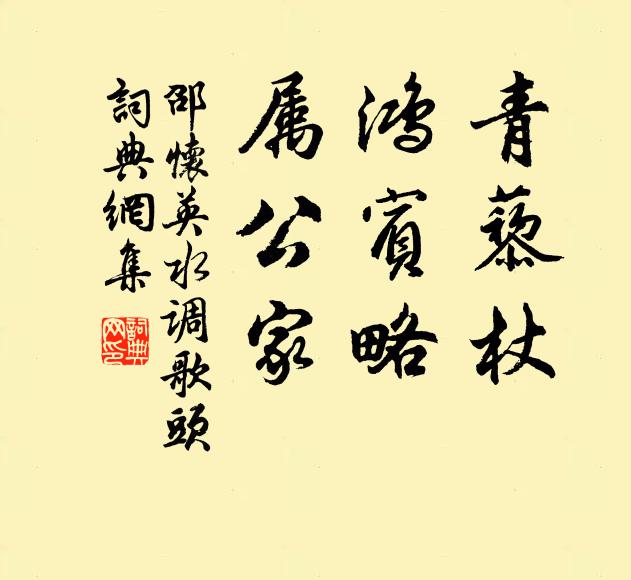 青藜杖
鸿賓略
属公家
邵懷英水调歌頭
詞典網集
詞典网印